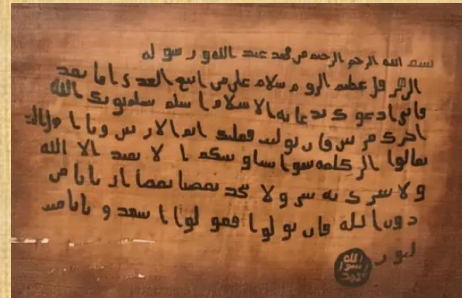 بسم الله الرحمن الرحيم من محمد عبد الله ورسوله
الى هرقل عظيم الروم سلام على من اتبع الهدى اما بعد
فاني ادعوك بدعاية الاسلام اسلم تسلم يوتك الله
اجرك مرتين فان توليت فعليك اثم الاريسيين ويا
تعالوا الى كلمة سوا بيننا وبينكم ا لا نعبد الا الله
ولا نشرك به شيا ولا يتخذ بعضنا بعضا اربابا من
دون الله فان تولوا فقولوا اشهدوا بانا مس
لمون
الله
رسول
محمد